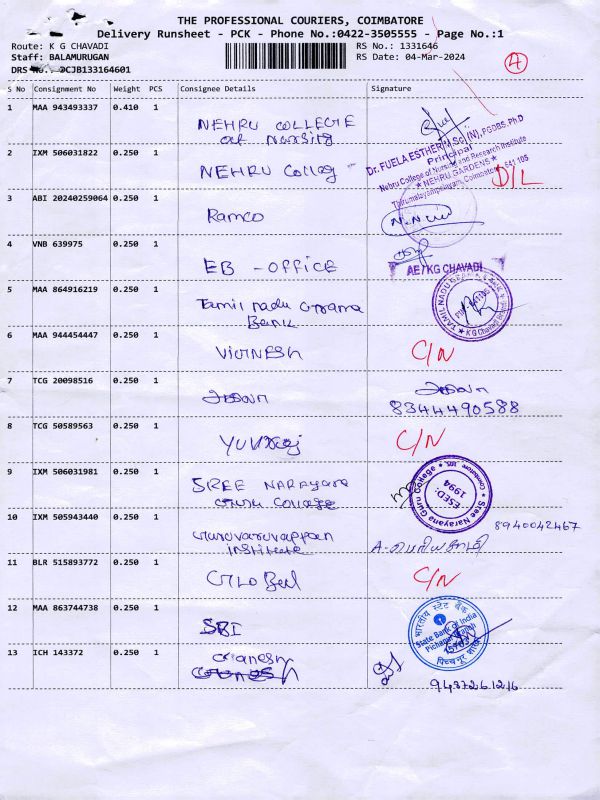 THE PROFESSIONAL COURIERS, COIMBATORE
Delivery Runsheet - PCK - Phone No.:0422-3505555 - Page No.:1
Route: K G CHAVADI
RS No.: 1331646
Staff: BALAMURUGAN
RS Date: 04-Mar-2024
DRS No.: @CJB133164601
4
S No Consignment No Weight PCS Consignee Details Signature
1 MAA 943493337 0.410 1 NEHRU COLLEGE
of Nursing
Dr. FUELA ESTHER M.Sc (N), PGDBS, Ph.D
Principal
Nehru College of Nursing and Research Institute
★ NEHRU GARDENS ★
Thirumalayampalayam, Coimbatore - 641 105
2 IXM 506031822 0.250 1 NEHRU Colleg D/L
3 ABI 20240259064 0.250 1 Ramco
4 VNB 639975 0.250 1 EB - OFFICE
AE / KG CHAVADI
5 MAA 864916219 0.250 1 Tamil nadu Grama
Bank
6 MAA 944454447 0.250 1 VIGNESH C/N
7 TCG 20098516 0.250 1
8344490588
8 TCG 50589563 0.250 1 YUVaraj C/N
9 IXM 506031981 0.250 1 SREE NARAYANA
GURU COLLEGE
Sree Narayana Guru College
Coimbatore - 105.
ESED:
1994
10 IXM 505943440 0.250 1 Guruvaruvappan
institute
8940042467
A. பெரியசாமி
11 BLR 515893772 0.250 1 GLO Bel C/N
12 MAA 863744738 0.250 1 SBI
भारतीय स्टेट बैंक
State Bank of India
Pichanur Branch
13 ICH 143372 0.250 1 Ganesh
9437261216